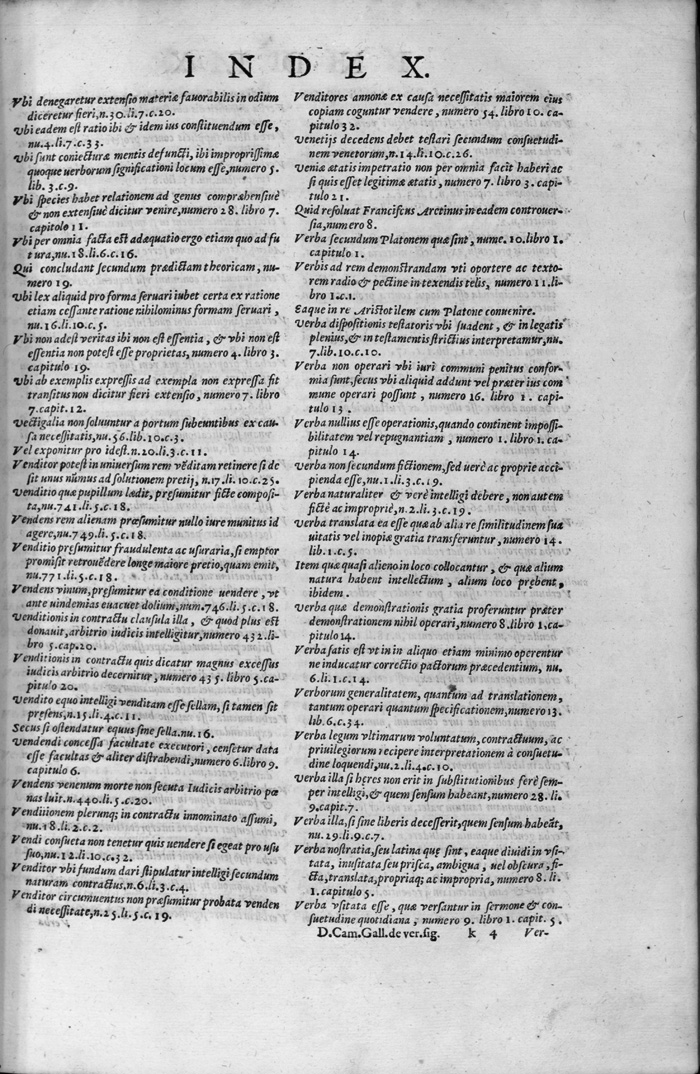 INDEX.
Vbi denegaretur extensio materiæ fauorabilis in odium
diceretur fieri, n.30.li.7.c.20.
Vbi eadem est ratio ibi & idem ius constituendum esse,
nu.4.li.7.c.33.
Vbi sunt coniecturæ mentis defuncti, ibi improprissimæ
quoque uerborum significationi locum esse, numero 5.
lib. 3.c.9.
Vbi species habet relationem ad genus compræhensiuè
& non extensiuè dicitur venire, numero 28. libro 7.
capitolo 11.
Vbi per omnia facta est adæquatio ergo etiam quo ad fu
tura, nu.18.li.6.c.16.
Qui concludant secundum prædictam theoricam, nu-
mero 19.
Vbi lex aliquid pro forma seruari iubet certa ex ratione
etiam cessante ratione nihilominus formam seruari,
nu.16.li.10.c.5.
Vbi non adest veritas ibi non est essentia, & vbi non est
essentia non potest esse proprietas, numero 4. libro 3.
capitulo 19.
Vbi ab exemplis expressis ad exempla non expressa fit
transitus non dicitur fieri extensio, numero 7. libro
7.capit.12.
Vectigalia non soluuntur a portum subeuntibus ex cau-
sa necessitatis, nu.56.lib.10.c.3.
Vel exponitur pro idest.n.20.li.3.c.11.
Venditor potest in uniuersum rem vẽditam retinere si de
sit unus nũmus ad solutionem pretij, n.17.li.10.c.25.
Venditio quæ pupillum lædit, præsumitur ficte composi-
ta, nu.741.li.5.c.18.
Vendens rem alienam præsumitur nullo iure munitus id
agere, nu.749.li.5.c.18.
Venditio præsumitur fraudulenta ac usuraria, si emptor
promisit retrouẽdere longe maiore pretio, quam emit,
nu.771.li.5.c.18.
Vendens vinum, præsumitur ea conditione uendere, vt
ante uindemias euacuet dolium, num.746.li.5.c.18.
Venditionis in contractu clausula illa, & quod plus est
donauit, arbitrio iudicis intelligitur, numero 432.li-
bro 5.cap.20.
Venditionis in contractu quis dicatur magnus excessus
iudicis arbitrio decernitur, numero 435. libro 5.ca-
pitulo 20.
Vendito equo intelligi venditam esse sellam, si tamen sit
præsens, n.15.li.4.c.11.
Secus si ostendatur equus sine sella.nu.16.
Vendendi concessa facultate executori, censetur data
esse facultas & aliter distrahendi, numero 6.libro 9.
capitulo 6.
Vendens venenum morte non secuta Iudicis arbitrio pœ
nas luit.n.440.li.5.c.20.
Venditionem plerunq; in contractu innominato assumi,
nu.18.li.2.c.2.
Vendi consueta non tenetur quis uendere si egeat pro usu
suo, nu.12.li.10.c.32.
Venditor vbi fundum dari stipulatur intelligi secundum
naturam contractus, n.6.li.3.c.4.
Venditor circumuentus non præsumitur probata venden
di necessitate, n.25.li.5.c.19.
Venditores annonæ ex causa necessitatis maiorem eius
copiam coguntur vendere, numero 54. libro 10. ca-
pitulo 32.
Venetijs decedens debet testari secundum consuetudi-
nem venetorum, n.14.li.10.c.26.
Veniæ ætatis impetratio non per omnia facit haberi ac
si quis esset legitimæ ætatis, numero 7. libro 3. capi-
tulo 21.
Quid resoluat Franciscus Aretinus in eadem controuer-
sia, numero 8.
Verba secundum Platonem quæ sint, nume. 10.libro 1.
capitulo 1.
Verbis ad rem demonstrandam vti oportere ac texto-
rem radio & pectine in texendis telis, numero 11.li-
bro 1.c.1.
Eaque in re Aristotilem cum Platone conuenire.
Verba dispositionis testatoris vbi suadent, & in legatis
plenius, & in testamentis strictius interpretamur, nu.
7.lib.10.c.10.
Verba non operari vbi iuri communi penitus confor-
mia sunt, secus vbi aliquid addunt vel præter ius com
mune operari possunt, numero 16. libro 1. capi-
tulo 13.
Verba nullius esse operationis, quando continent impossi-
bilitatem vel repugnantiam, numero 1. libro 1. ca-
pitulo 14.
Verba non secundum fictionem, sed uerè ac proprie acci-
pienda esse, nu.1.li.3.c.19.
Verba naturaliter & verè intelligi debere, non autem
fictè ac impropriè, n.2.li.3.c.19.
Verba translata ea esse quæ ab alia re similitudinem suæ
uitatis vel inopiæ gratia transferuntur, numero 14.
lib.1.c.5.
Item quæ quasi alieno in loco collocantur, & quæ alium
natura habent intellectum, alium loco præbent,
ibidem.
Verba quæ demonstrationis gratia proferuntur præter
demonstrationem nihil operari, numero 8.libro 1.ca-
pitulo 14.
Verba satis est vt in in aliquo etiam minimo operentur
ne inducatur correctio pactorum præcedentium, nu.
6.li.1.c.14.
Verborum generalitatem, quantum ad translationem,
tantum operari quantum specificationem, numero 13.
lib.6.c.34.
Verba legum vltimarum voluntatum, contractuum, ac
priuilegiorum recipere interpretationem à consuetu-
dine loquendi, nu.2.li.4.c.10.
Verba illa si heres non erit in substitutionibus ferè sem-
per intelligi, & quem sensum habeant, numero 28. li.
9.capit.7.
Verba illa, si sine liberis decesserit, quem sensum habeãt,
nu.29.li.9.c.7.
Verba nostratia, seu latina quę sint, eaque diuidi in vsi-
tata, inusitata seu prisca, ambigua, uel obscura, fi-
cta, translata, propriaq; ac impropria, numero 8. li.
1.capitulo 5.
Verba vsitata esse, quæ versantur in sermone & con-
suetudine quotidiana, numero 9. libro 1. capit. 5.
D.Cam.Gall.de ver.sig. k 4 Ver-